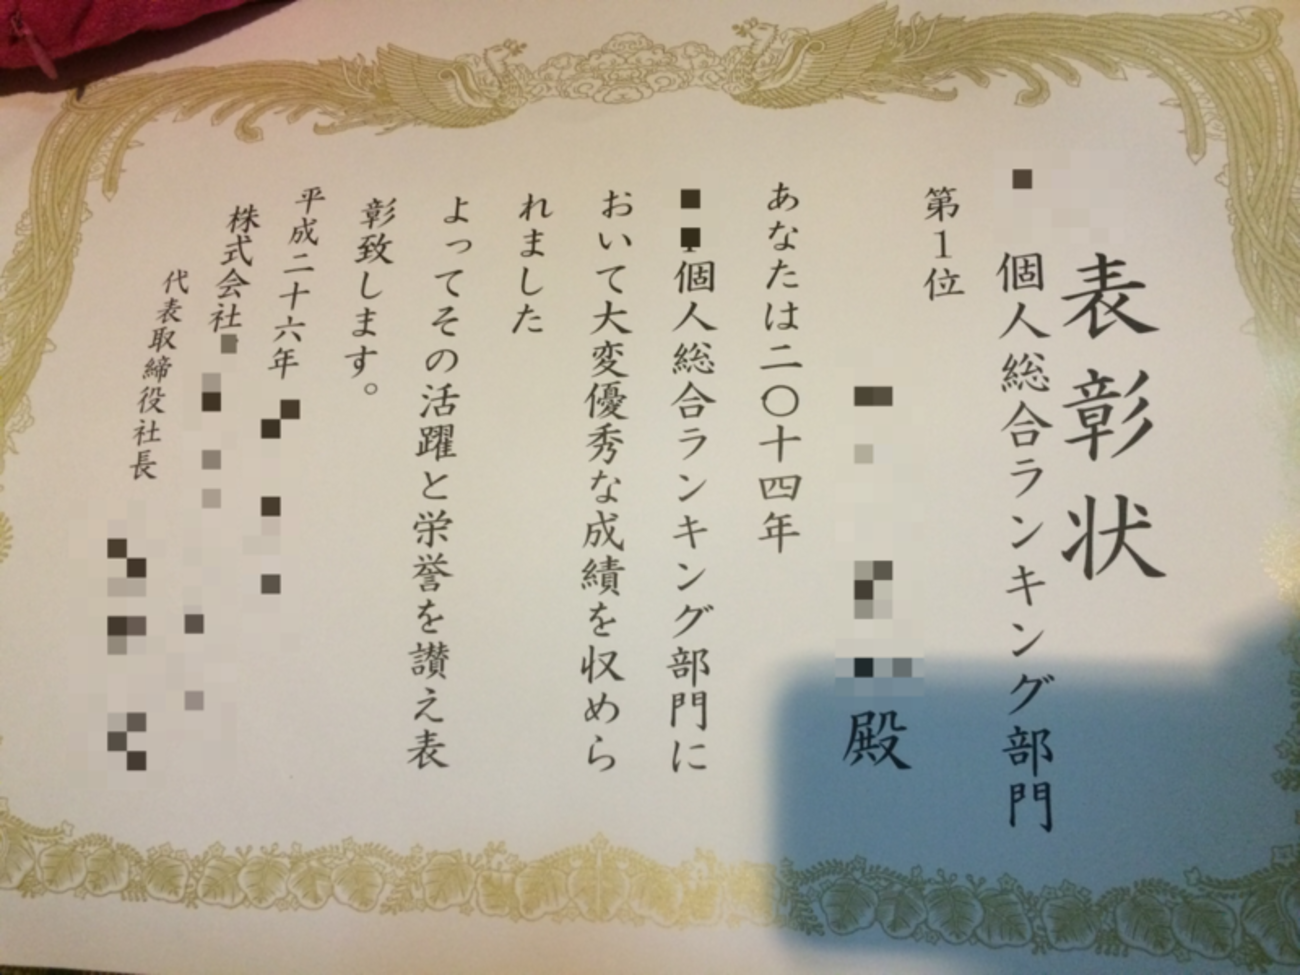 表彰状
個人総合ランキング部門
第1位
殿
あなたは二〇十四年
個人総合ランキング部門に
おいて大変優秀な成績を収めら
れました
よってその活躍と栄誉を讃え表
彰致します。
平成二十六年
株式会社
代表取締役社長